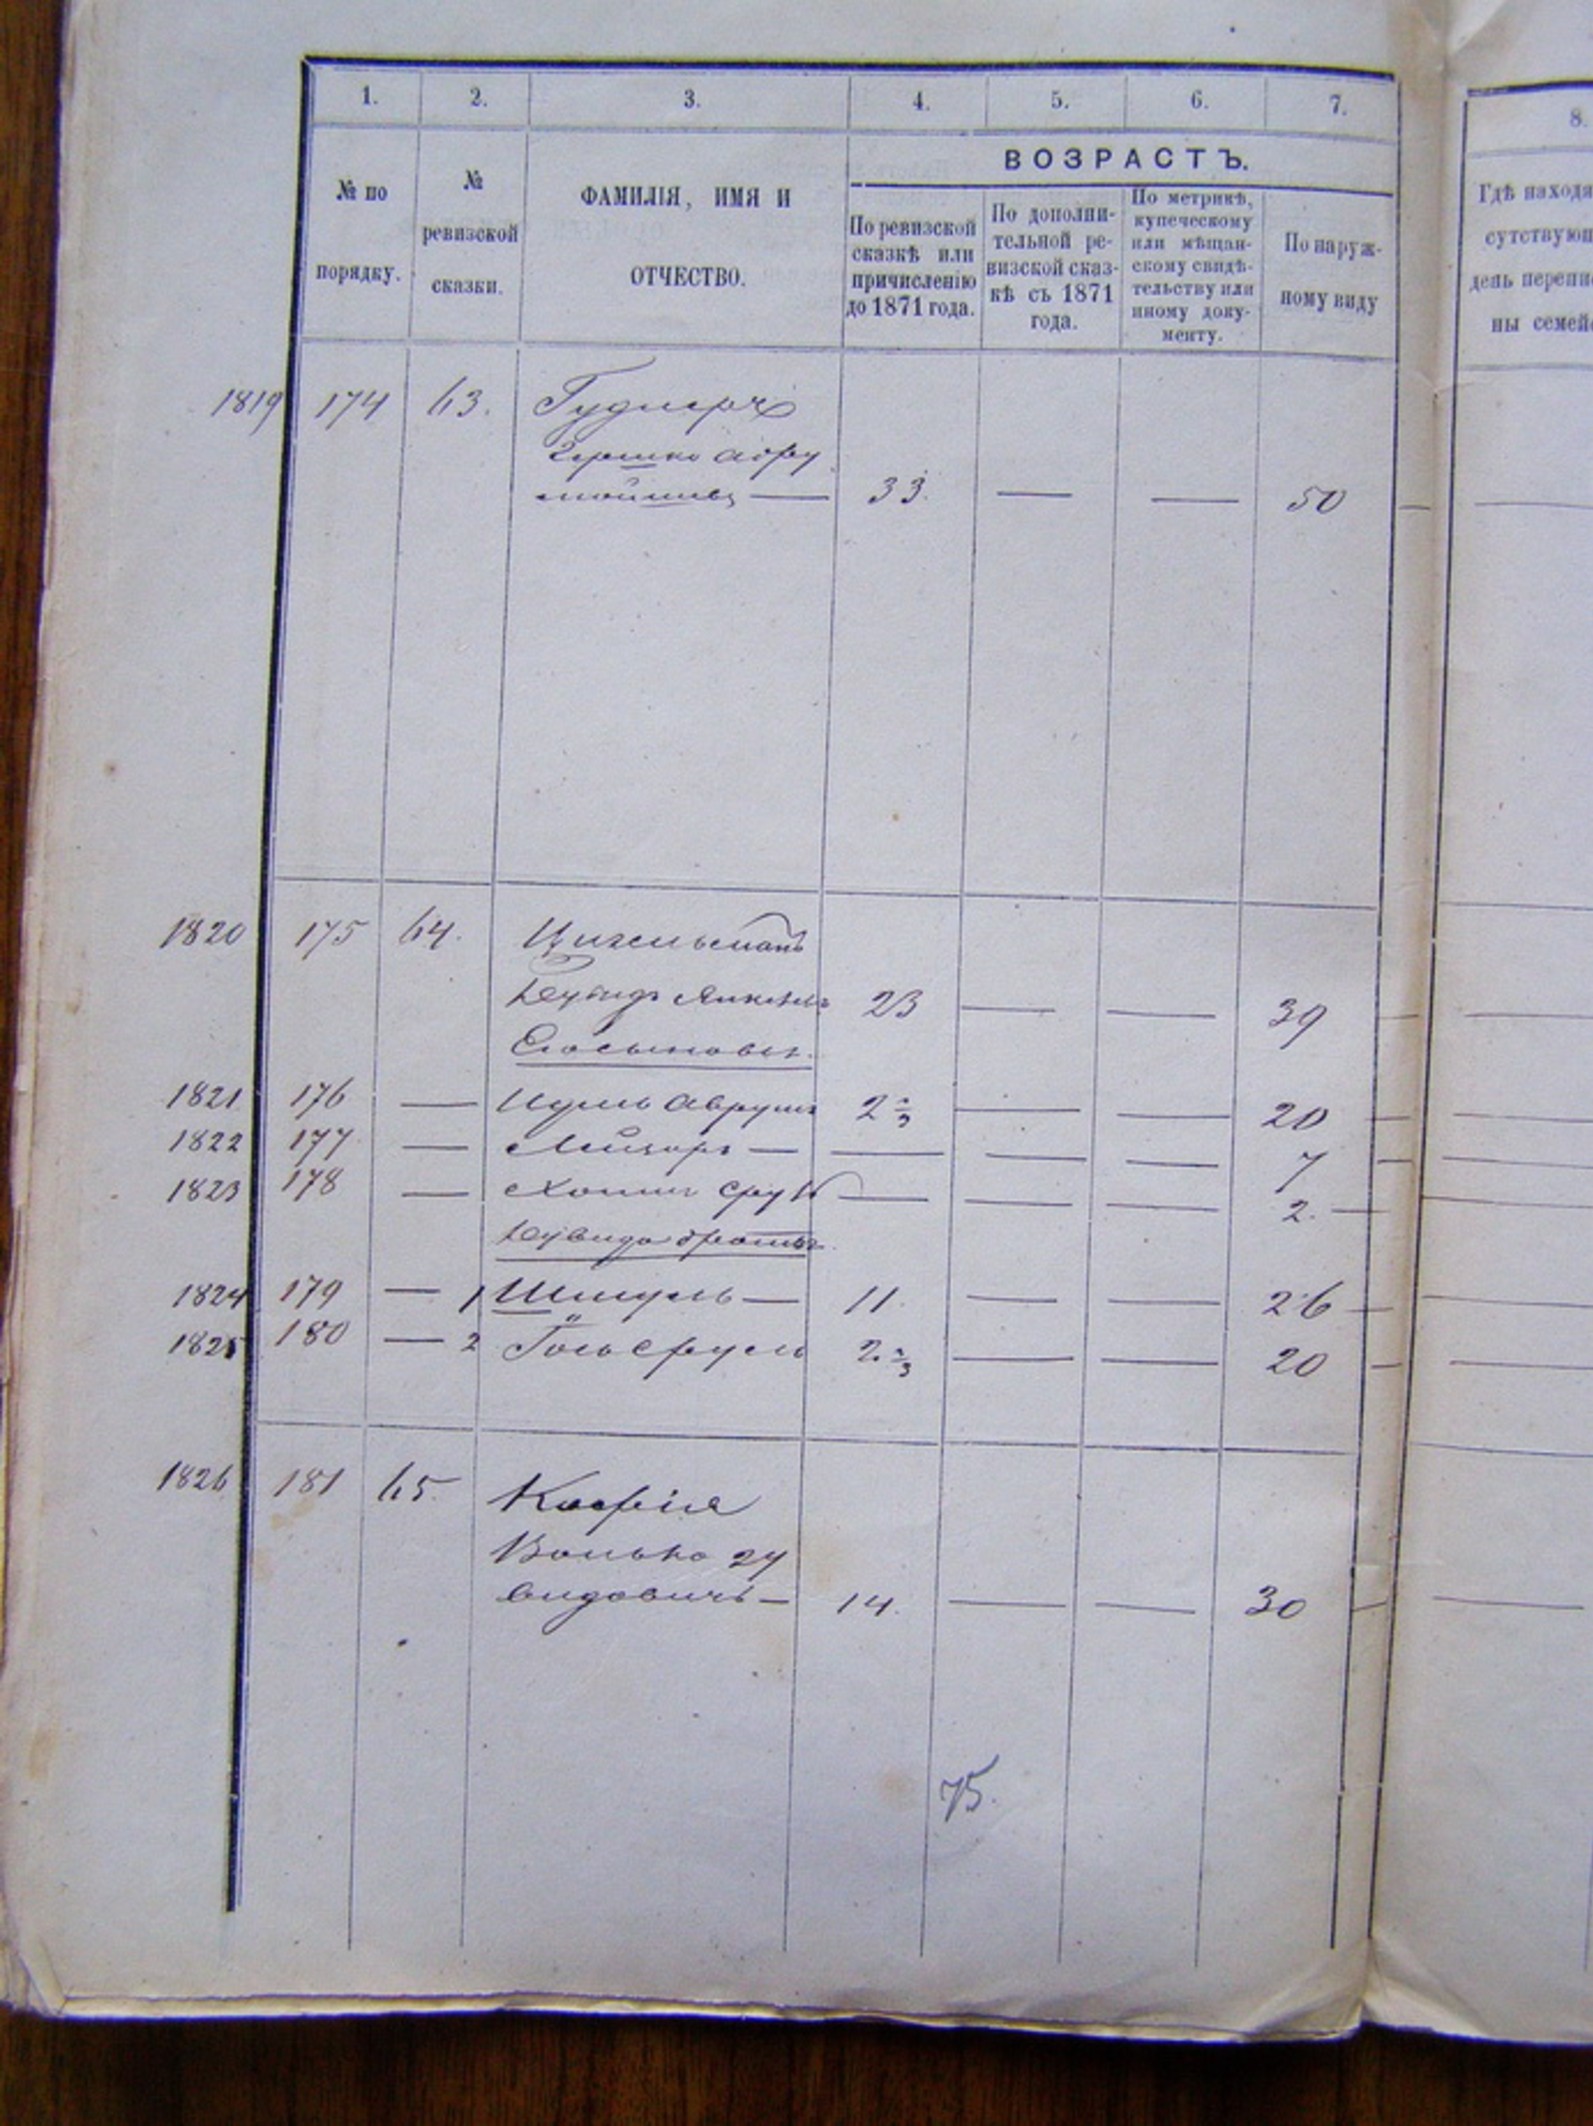 1. 2. 3. 4. 5. 6. 7. 8.
ВОЗРАСТЪ.
№ по
порядку.
№
ревизской
сказки.
ФАМИЛІЯ, ИМЯ И
ОТЧЕСТВО.
По ревизской
сказкѣ или
причисленію
до 1871 года.
По дополни-
тельной ре-
визской сказ-
кѣ съ 1871
года.
По метрикѣ,
купеческому
или мѣщан-
скому свидѣ-
тельству или
иному доку-
менту.
По наруж-
ному виду
Гдѣ находя
сутствующ
день перепи
ны семей
1819 174 63.
Гершко Абру
33. — — 50
1820 175 64.
Дувидъ 23 — — 39
1821 176 — Идель Аврумъ 2 2/3 — — 20
1822 177 — Лейзоръ — — — — 7
1823 178 — Сру — — — 2.
Дувида братья
1824 179 — 1 Шмуль — 11. — — 26
1825 180 — 2 Сруль 2 2/3 — — 20
1826 181 65.
Волько Ду
видовичъ — 14. — — 30
75.